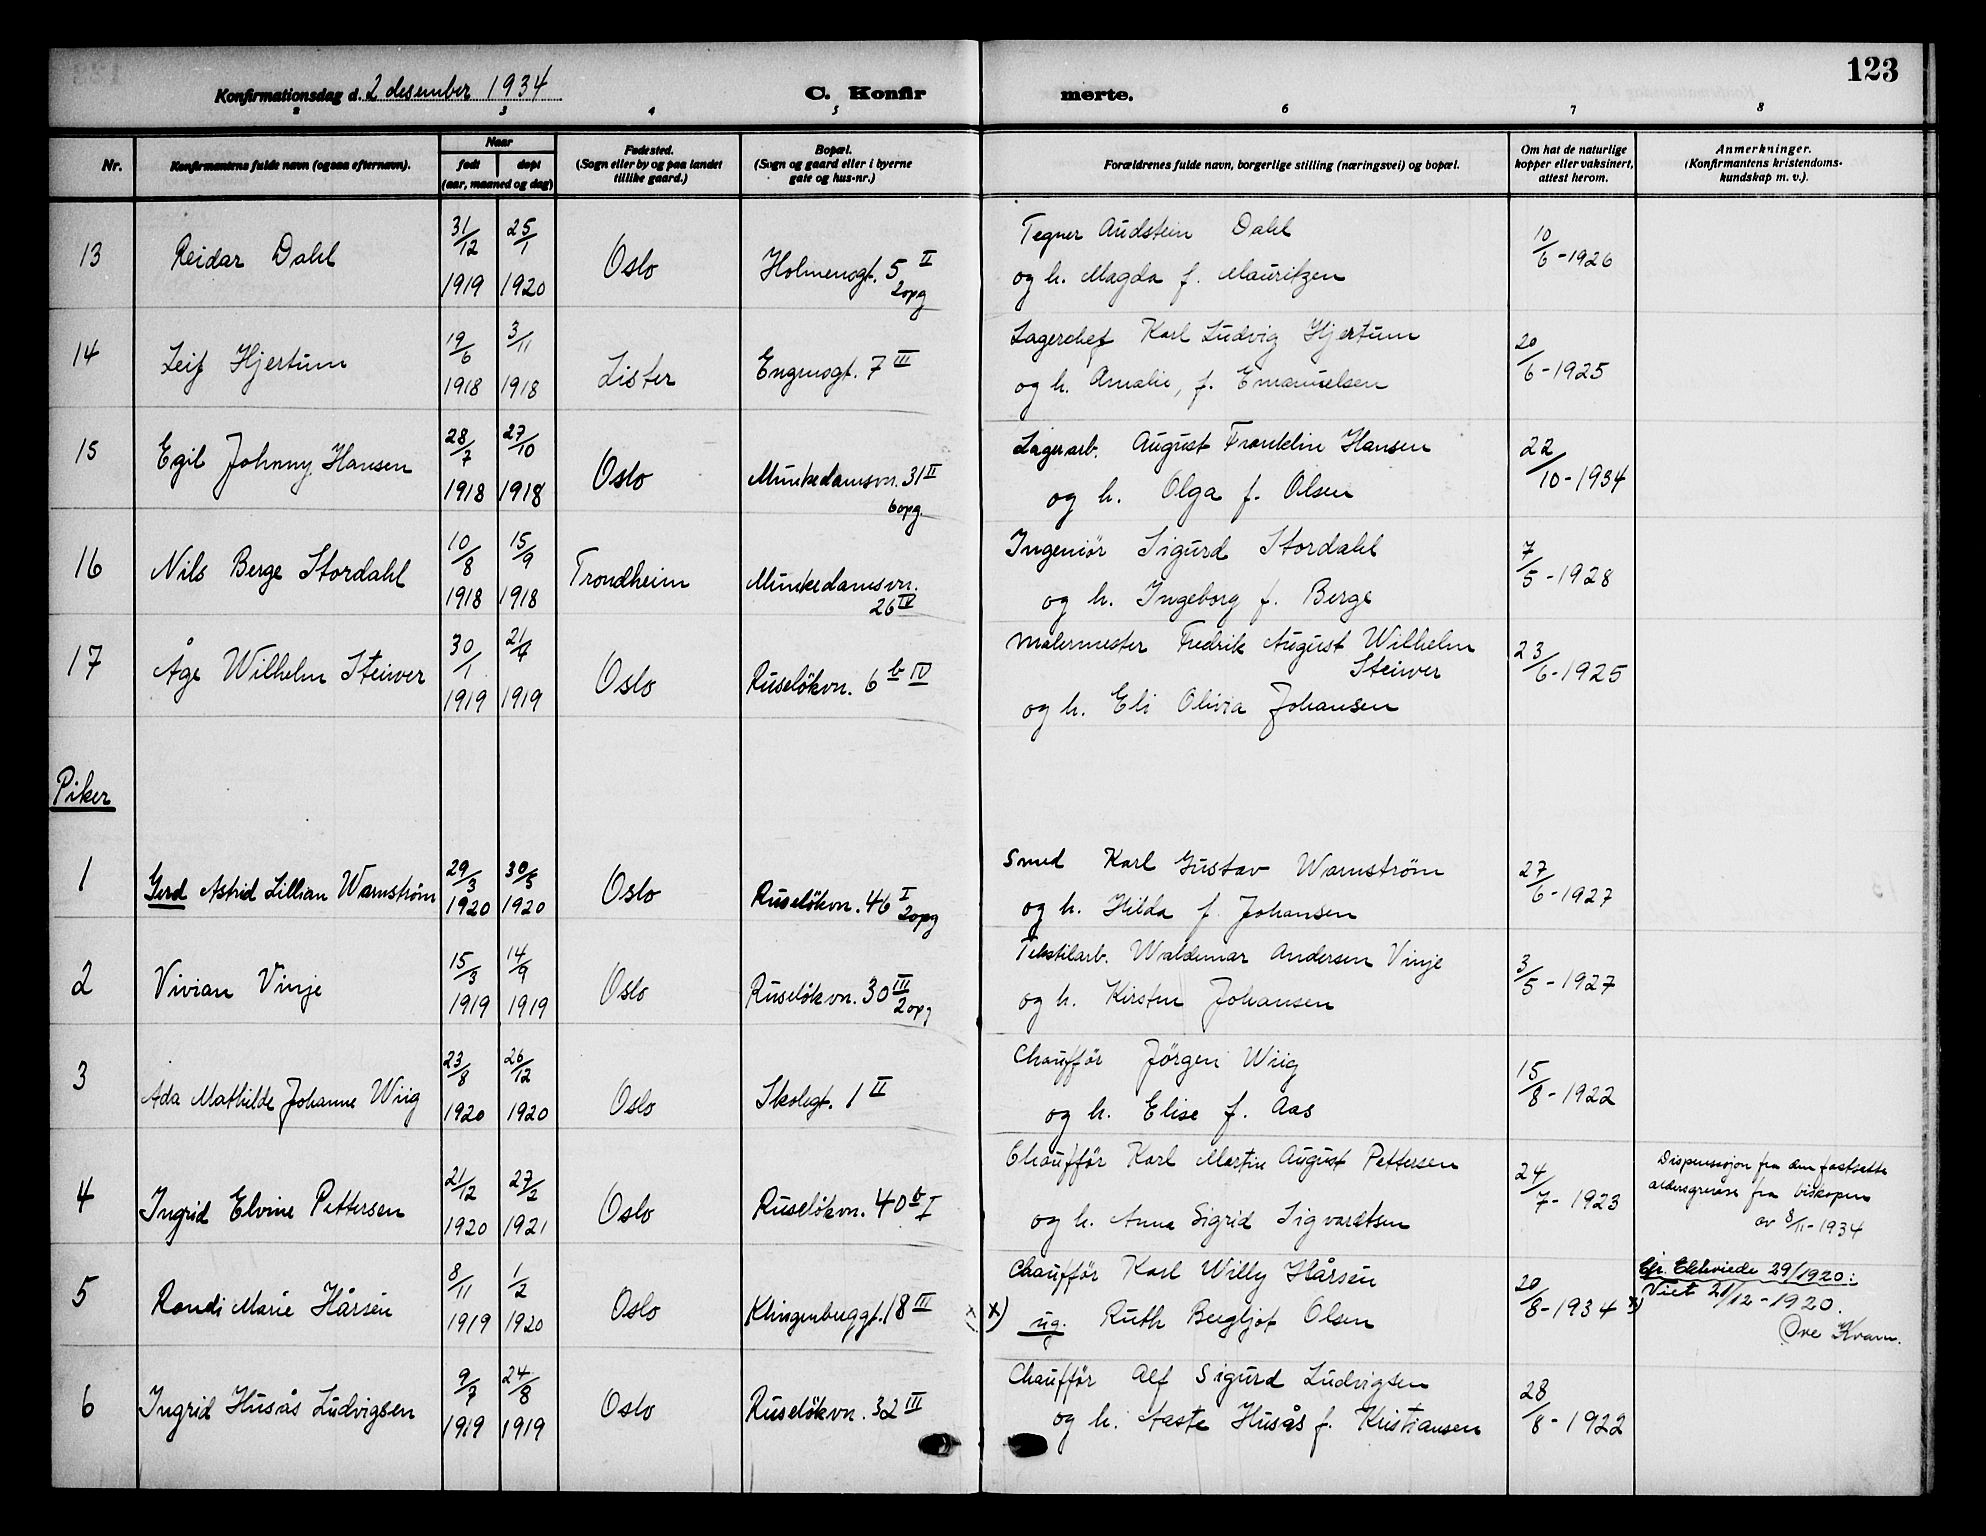 123
Konfirmationsdag d. 2 desember 1934
C. Konfir
merte.
2 3 4 5 6 7 8
Nr.
Konfirmantens fulde navn (ogsaa efternavn).
Naar
født
døpt
(aar, maaned og dag)
Fødested.
(Sogn eller by og paa landet
tillike gaard.)
Bopæl.
(Sogn og gaard eller i byerne
gate og hus-nr.)
Forældrenes fulde navn, borgerlige stilling (næringsvei) og bopæl.
Om hat de naturlige
kopper eller vaksinert,
attest herom.
Anmerkninger.
(Konfirmantens kristendoms-
kundskap m. v.).
13 Reidar Dahl 31/12 1919 25/1 1920 Oslo Holmensgt. 5 II
2opg
Tegner Audstein Dahl 10/6 - 1926
og h. Magda f. Mauritzen
14 Leif Hjertum 19/6 1918 3/11 1918 Lister Engensgt. 7 III
Lagerchef Karl Ludvig Hjertum 20/6 - 1925
og h. Amalie, f. Emanuelsen
15 Egil Johnny Hansen 28/7 1918 27/10 1918 Oslo Munkedamsvn. 31 II
6opg.
Lagerarb. August Franklin Hansen 22/10 - 1934
og h. Olga f. Olsen
16 Nils Berge Stordahl 10/8 1918 15/9 1918 Trondheim Munkedamsvn.
26 IV
Ingeniör Sigurd Stordahl 7/5 - 1928
og h. Ingeborg f. Berge
17 Åge Wilhelm Steiwer 30/1 1919 21/4 1919 Oslo Ruselökvn. 6 b IV
Malermester Fredrik August Wilhelm
Steiwer 23/6 - 1925
og h. Eli Olivia Johansen
Piker
1 Gerd Astrid Lillian Warnström 29/3 1920 30/5 1920 Oslo Ruselökvn. 46 I
2opg
Smed Karl Gustav Warnström 27/6 - 1927
og h. Hilda f. Johansen
2 Vivian Vinje 15/3 1919 14/9 1919 Oslo Ruselökvn. 30 III
2opg
Tekstilarb. Waldemar Andersen Vinje 3/5 - 1927
og h. Kirsten Johansen
3 Ada Mathilde Johanne Wiig 23/8 1920 26/12 1920 Oslo Skolegt. 1 II
Chaufför Jörgen Wiig 15/8 - 1922
og h. Elise f. Aas
4 Ingrid Elvine Pettersen 21/12 1920 27/2 1921 Oslo Ruselökvn. 40 b I
Chaufför Karl Martin August Pettersen 24/7 - 1923
og h. Anna Sigrid Sigvardtsen
Dispensasjon fra den fastsatte
aldersgrense fra biskopen
av 8/11 - 1934
5 Randi Marie Hårsén 8/11 1919 1/2 1920 Oslo Klingenberggt. 18 III
Chaufför Karl Willy Hårsén 20/8 - 1934 x)
x) ug. Ruth Bergljot Olsen
29/1920:
Viet 21/12 - 1920.
Ove Kvam.
6 Ingrid Husås Ludvigsen 9/7 1919 24/8 1919 Oslo Ruselökvn. 32 III
Chaufför Alf Sigurd Ludvigsen 28/8 - 1922
og h. Aaste Husås f. Kristiansen